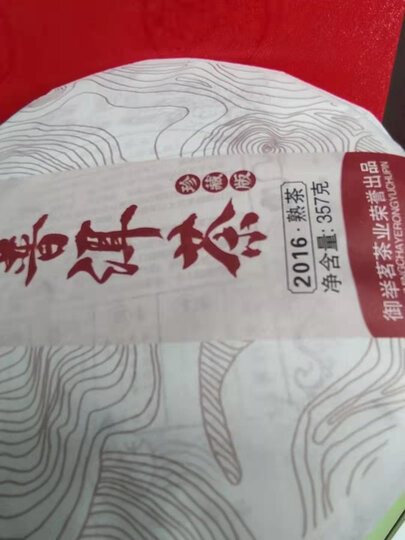 普洱茶
珍藏版
2016·熟茶
净含量:357克
御举茗茶业荣誉出品